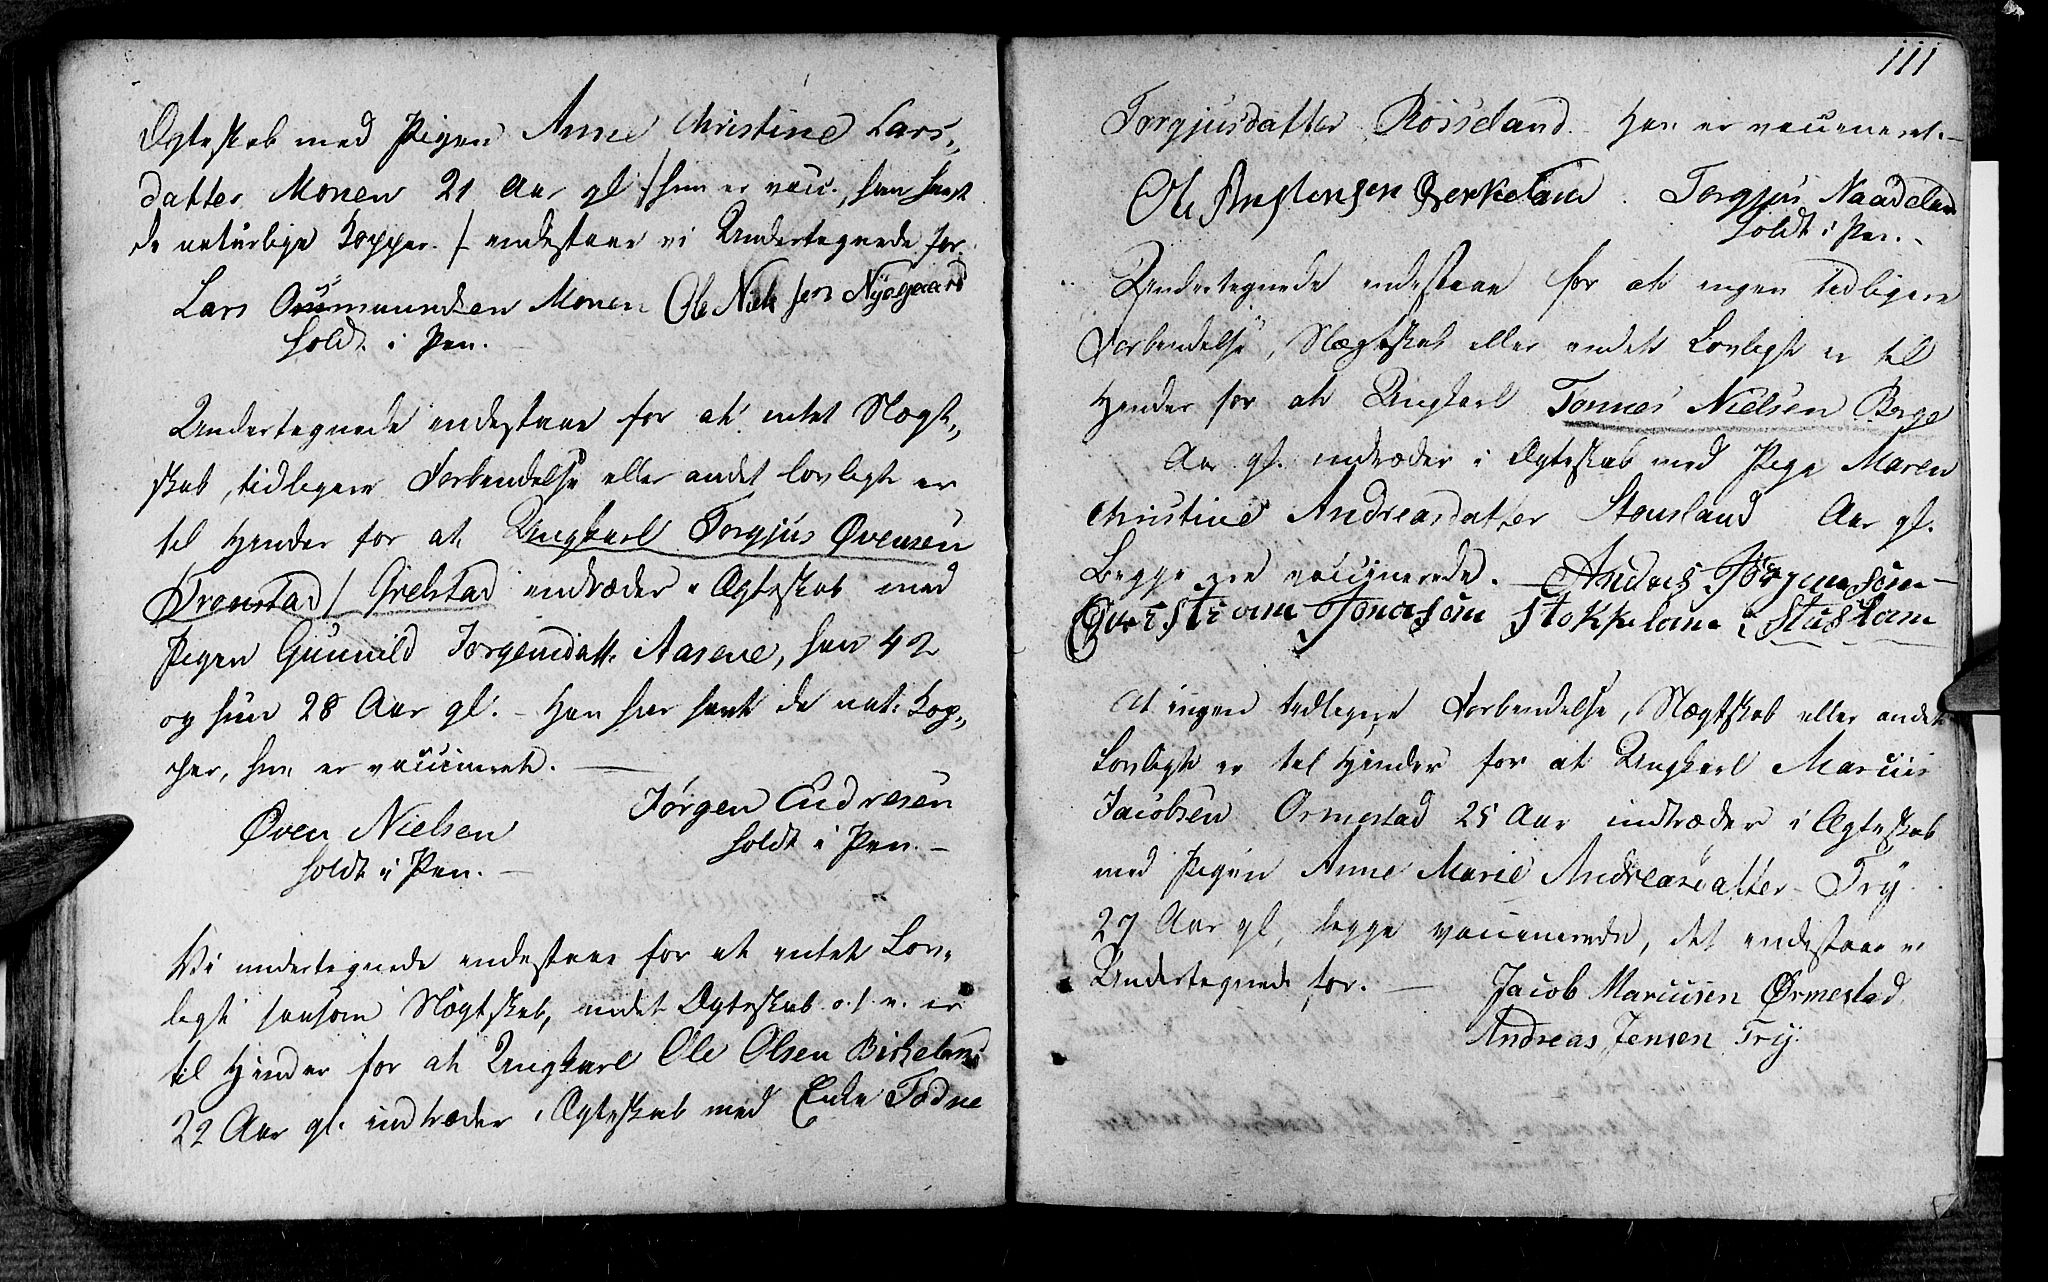 Ægteskab med Pigen Anne Christine Lars-
datter Monen 21 Aar gl / hun er vacc., han havt
de naturlige Kopper. / indestaae vi Undertegnede for.
Lars Osmundsen Monen Ole Niels sen Nÿegaard
holdt i Pen.
Undertegnede indestaae for at intet Slægt-
skab, tidligere Forbindelse eller andet lovligt er
til Hinder for at Ungkarl Torgjus Øvensen
Tronstad / Grelstad indtræder i Ægteskab med
Pigen Gunnild Jørgensdatt. Aasene, han 42
og hun 28 Aar gl. - Han har havt de nat. Kop-
per, hun er vaccineret.
Øven Nielsen
holdt i Pen. -
Jørgen Endresen
holdt i Pen. -
Vi undertegnede indestaae for at intet Lov-
ligt saasom Slægtskab, andet Ægteskab o. s. v. er
til Hinder for at Ungkarl Ole Olsen Birkeland
22 Aar gl. indtræder i Ægteskab med Enke Todne
111
Torgjusdatter Rosseland. - Han er vaccineret. -
Ole Anstensen Berkelan . Torgjus Naadelan
holdt i Pen. -
Undertegnede indestaae for at ingen tidligere
Forbindelse, Slægtskab eller andet Lovligt er til
Hinder for at Ungkarl Tønnes Nielsen Berge
Aar gl. indtræder i Ægteskab med Pige Maren
Christine Andreasdatter Stousland Aar gl.
Begge ere vaccinerede. - Andres Jørgensen -
Cristian Jonasøn Stokkelan i Stuslan
At ingen tidligere Forbindelse, Slægtskab eller andet
Lovligt er til Hinder for at Ungkarl Marcus
Jacobsen Ormestad 25 Aar indtræder i Ægteskab
med Pigen Anne Marie Andreasdatter Try
27 Aar gl, begge vaccinerede, det indestaae vi
Undertegnede for. -
Jacob Marcusen Ørmestad
Andreas Jensen Try.